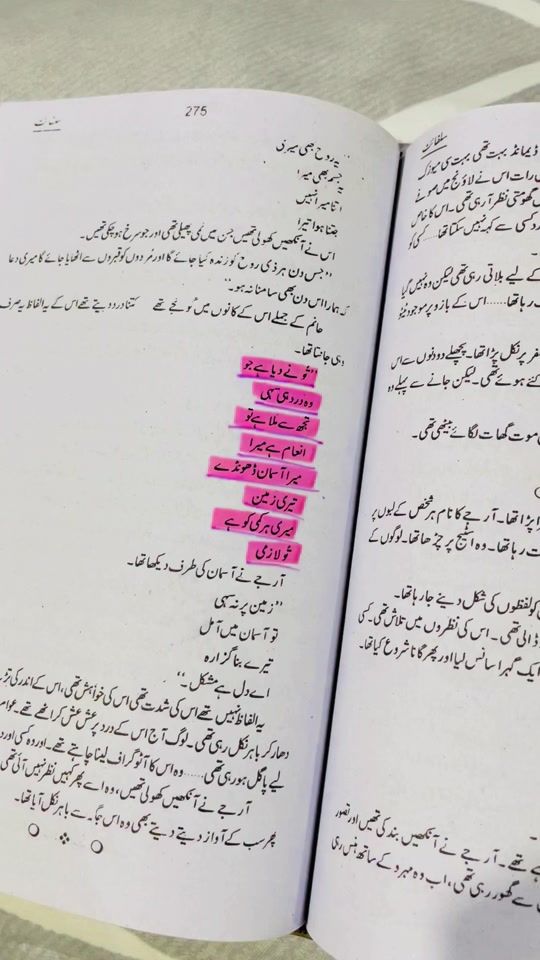 275
یہ روح بھی میری
یہ جسم بھی میرا
اتنا میرا نہیں
جتنا ہوا تیرا
اس نے آنکھیں کھولی تھیں جن میں نمی پھیلی تھی اور جو سرخ ہو چکی تھیں۔
”جس دن ہر ذی روح کو زندہ کیا جائے گا اور مُردوں کو قبروں سے اٹھایا جائے گا میری دعا
کہ ہمارا اس دن بھی سامنا نہ ہو۔“
حانم کے جملے اس کے کانوں میں گونجے تھے کتنا درد دیتے تھے اس کے یہ الفاظ یہ صرف
وہی جانتا تھا۔
”تُو نے دیا ہے جو
وہ درد ہی سہی
تجھ سے ملا ہے تو
انعام ہے میرا
میرا آسمان ڈھونڈے
تیری زمین
میری ہر کمی کو ہے
تُو لازمی
آر جے نے آسمان کی طرف دیکھا تھا۔
”زمین پر نہ سہی
تو آسمان میں آ مل
تیرے بنا گزارہ
اے دل ہے مشکل۔“
یہ الفاظ نہیں تھے اس کی شدت تھی اس کی خواہش تھی، اس کے اندر کی
دھار کر باہر نکل رہی تھی۔ لوگ آج اس کے درد پر عش عش کر اٹھے تھے۔
لیے پاگل ہو رہی تھی...... وہ اس کا آٹو گراف لینا چاہتے تھے۔ اور وہ کسی اور
آر جے نے آنکھیں کھولی تھیں، وہ اسے پھر کہیں نظر نہیں آئی تھی
پھر سب کے آواز دیتے دیتے بھی وہ اس جگہ سے باہر نکل آیا تھا۔
سلفائٹ
ڈیمانڈ بہت تھی بہت سی میوزک
رات اس نے لاؤنج میں سونے
گھومتی نظر آ رہی تھی۔ اس کا خاص
کسی سے کہہ نہیں سکتا تھا.....کسی کو
کے لیے بلاتی رہی تھی لیکن وہ نہیں گیا
رہا تھا......اس کے بازو پر موجود ٹیٹو
سفر پر نکل پڑا تھا۔ پچھلے دو دنوں سے اس
گئے ہوئے تھی۔ لیکن جانے سے پہلے وہ
موت گھات لگائے بیٹھی تھی۔
پڑا تھا۔ آر جے کا نام ہر شخص کے لبوں پر
رہا تھا۔ وہ اسٹیج پر چڑھا تھا۔ لوگوں کے
کو لفظوں کی شکل دینے جا رہا تھا۔
ڈالی تھی۔ اس کی نظروں میں تلاش تھی۔ کسی
ایک گہرا سانس لیا اور پھر گانا شروع کیا تھا۔
تھے۔ آر جے نے آنکھیں بند کی تھیں اور تصور
سے گھور رہی تھی، اب وہ مہرو کے ساتھ ہنس رہی